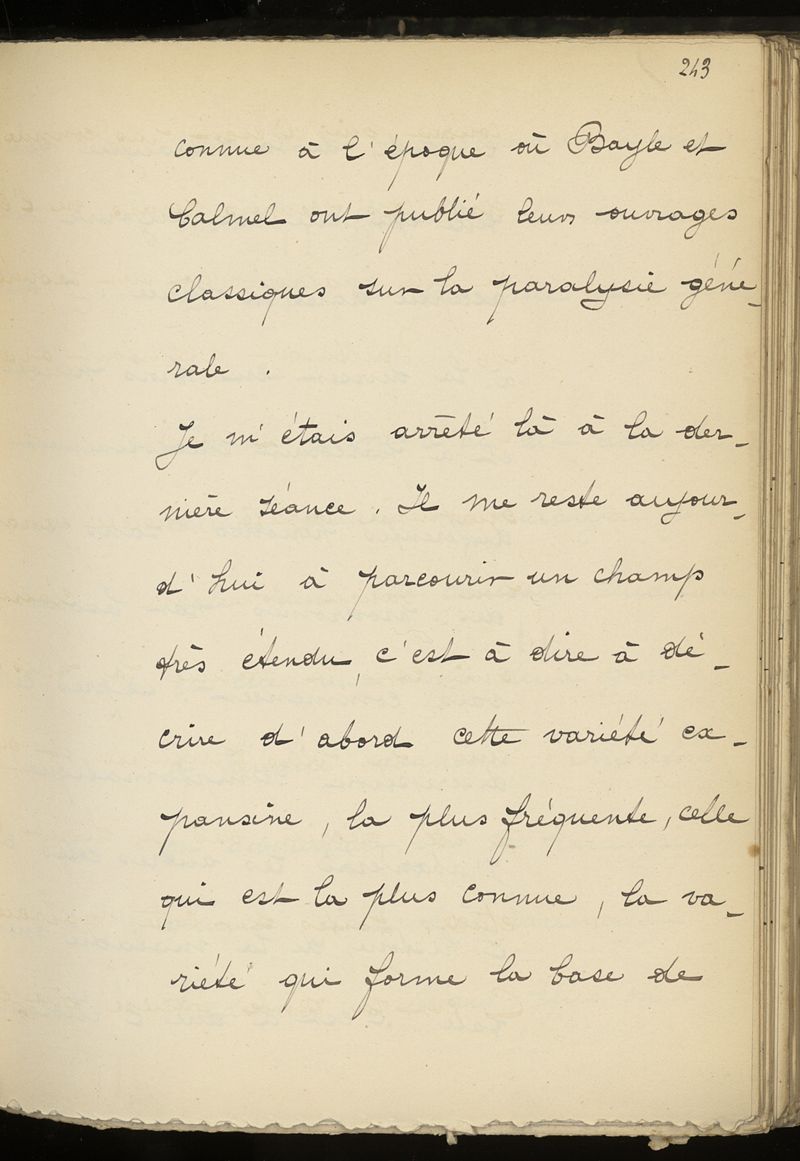 243
connue à l'époque où Bayle et
Calmel ont publié leurs ouvrages
classiques sur la paralysie géné-
rale.
Je m'étais arrêté là à la der-
nière séance. Il me reste aujour-
d'hui à parcourir un champ
très étendu, c'est à dire à dé-
crire d'abord cette variété ex-
pansive, la plus fréquente, celle
qui est la plus connue, la va-
riété qui forme la base de